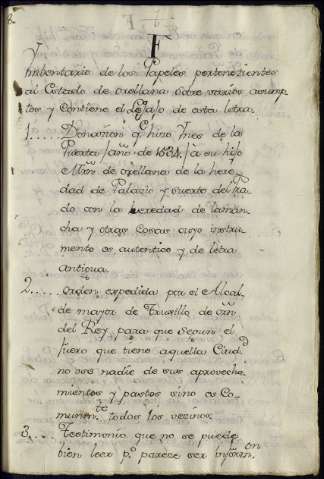 8.
F
Ymbentario de los Papeles pertenezientes
al Estado de Orellana sobre varios asump-
tos y Contiene el Legajo de esta letra.
1.... Donacion q.e hizo Ynes de la
Puerta, año de 1534, a su hijo
de Orellana de la here-
dad de Palazio y Puerto del
do con la heredad de laman-
cha y otras Cosas cuyo instru-
mento es autentico y de letra
antigua.
2.... orden expedida por el Alcal-
de mayor de Truxillo de orn
del Rey para que segun el
fuero que tiene aquella Ciud.d
no use nadie de sus aprovecha-
mientos y pastos sino es Co-
munen.te todos los vezinos.
3.... Testimonio que no se puede
bien leer p.o pareze ser